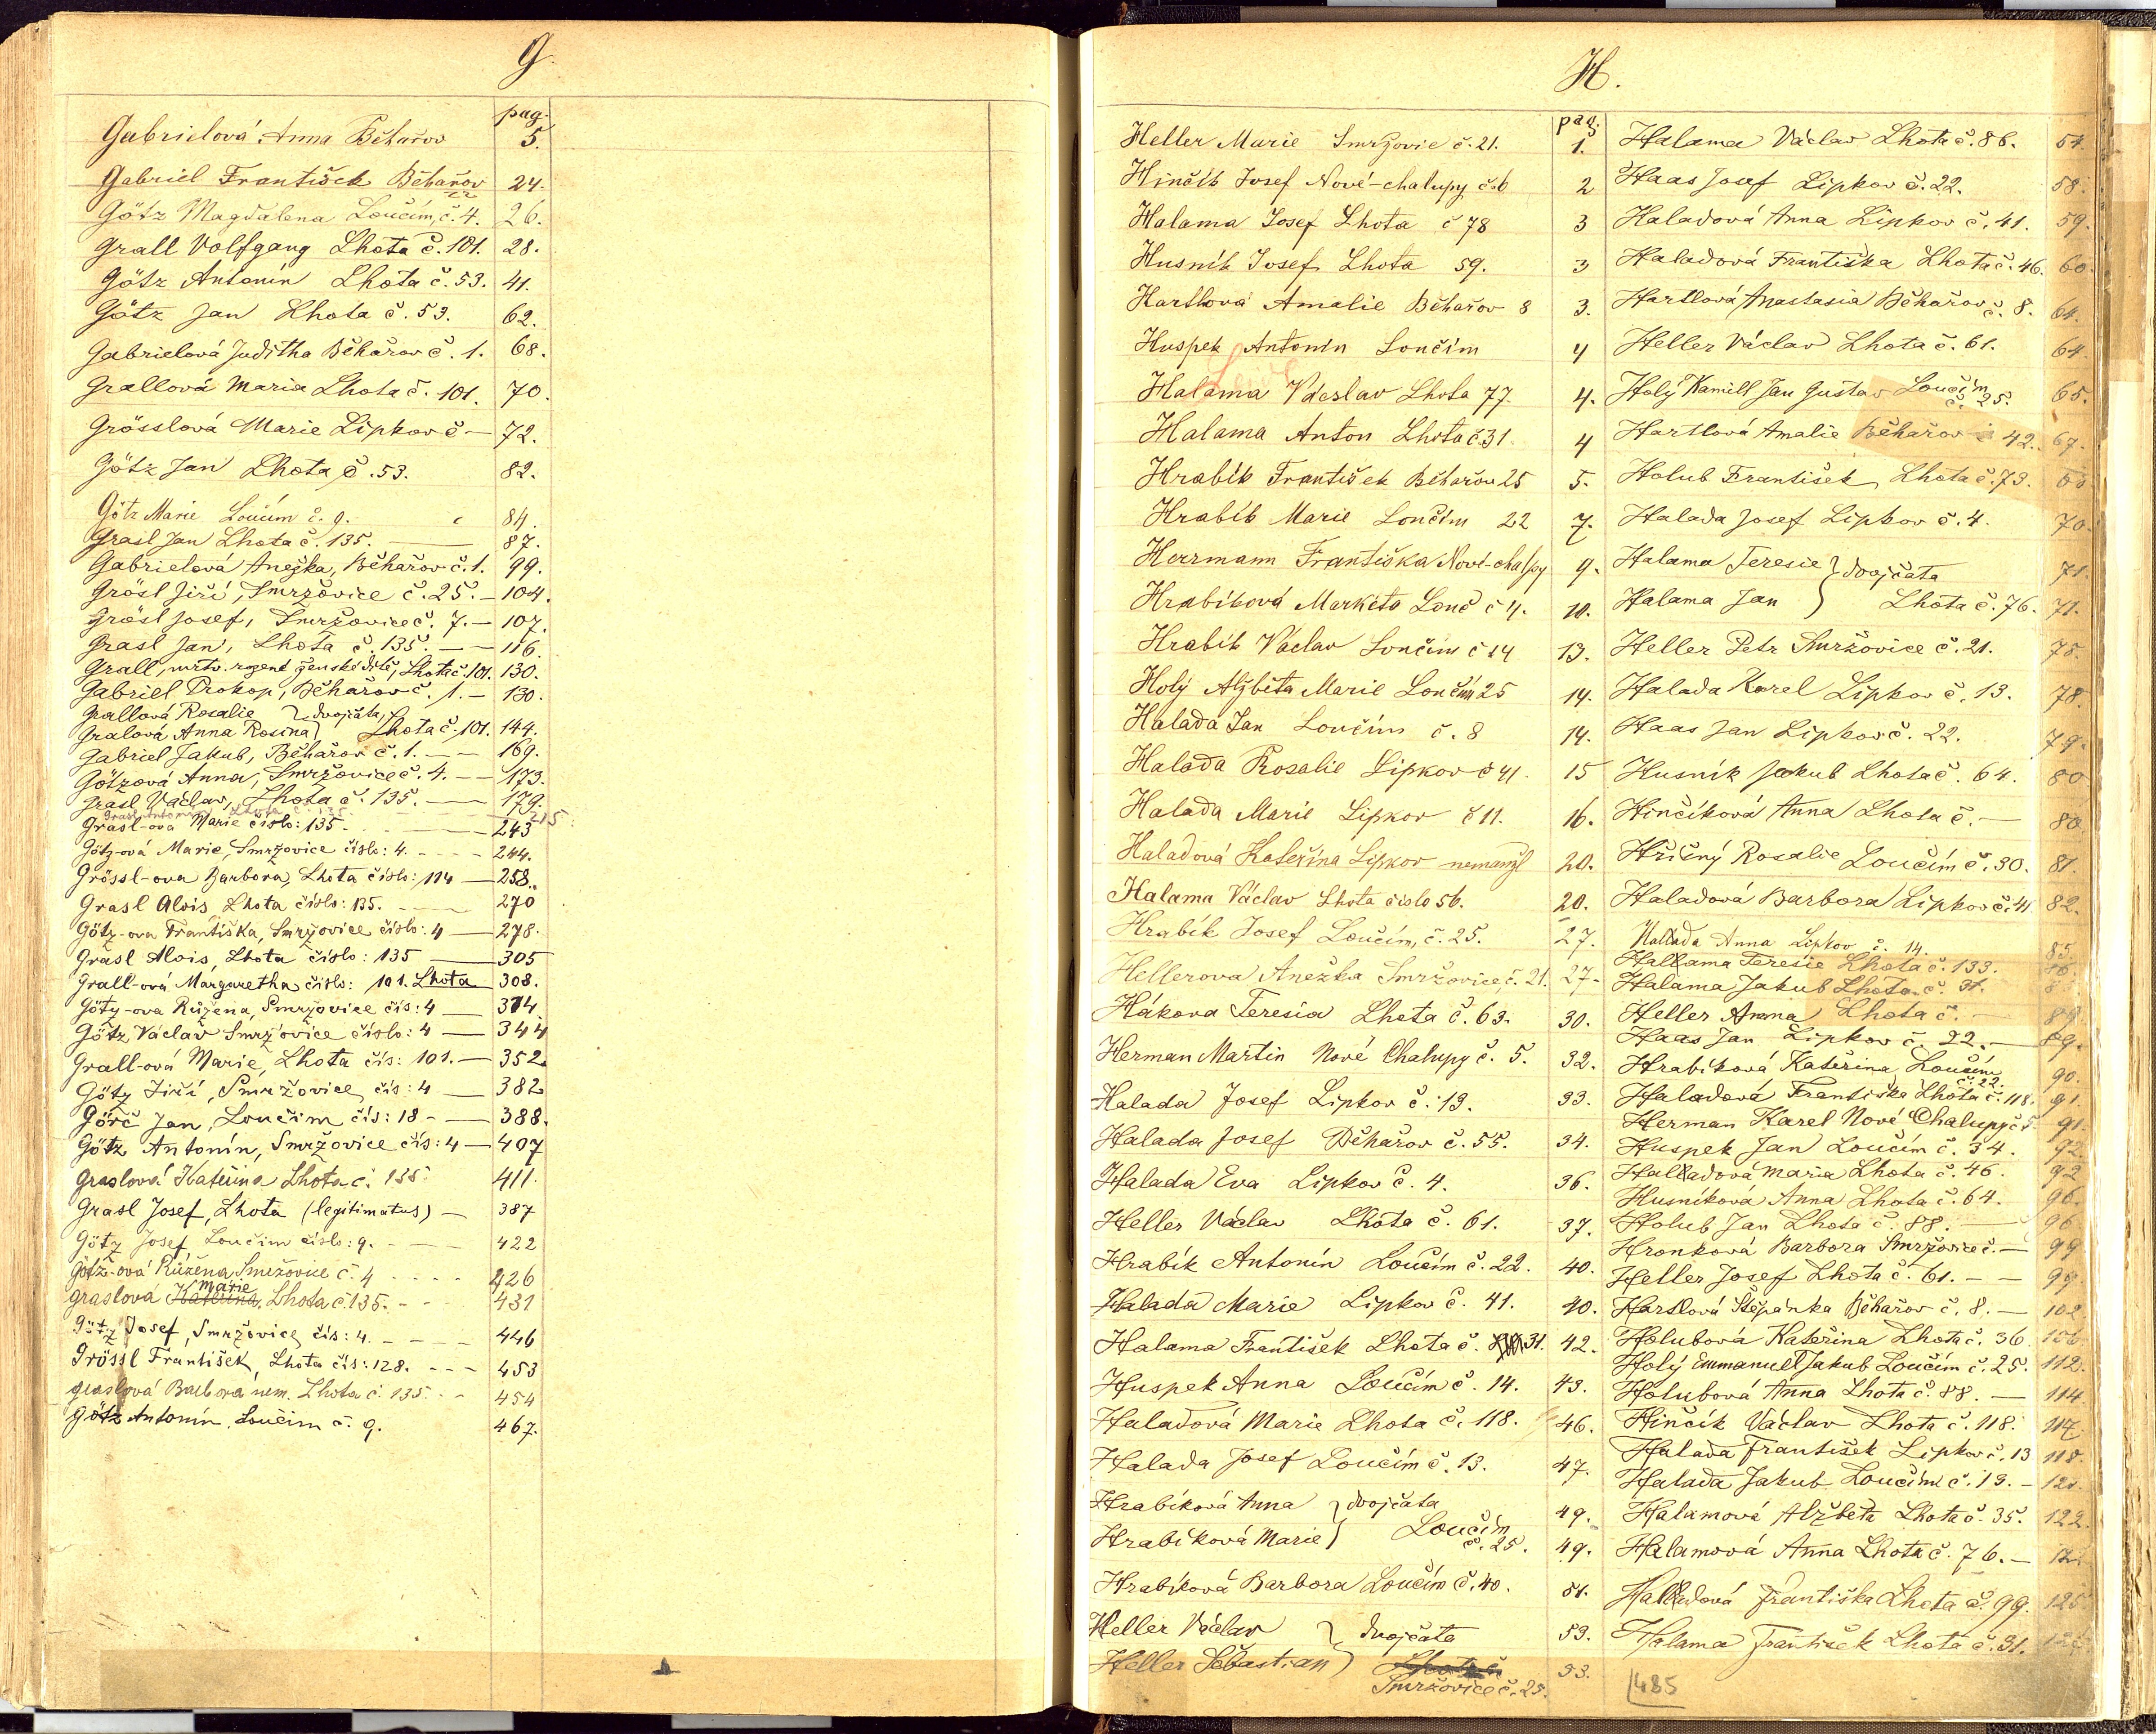 G.
pag.
Gabrielová Anna Běhařov 5.
Gabriel František Běhařov 24.
Götz Magdalena Loučím, č. 4. 26.
Grall Volfgang Lhota č. 101. 28.
Götz Antonín Lhota č. 53. 41.
Götz Jan Lhota č. 53. 62.
Gabrielová Juditha Běhařov č. 1. 68.
Grallová Maria Lhota č. 101. 70.
Grösslová Marie Lipkov č — 72.
Götz Jan Lhota č. 53. 82.
Götz Marie Loučím č. 9. 84.
Grasl Jan Lhota č. 135. — 87.
Gabrielová Anežka, Běhařov č. 1. 99.
Grösl Jiří, Smržovice č. 25. — 104.
Grösl Josef, Smržovice č. 7. — 107.
Grasl Jan, Lhota č. 135. — 116.
Grall, mrtv. rozené ženské dítě, Lhota č. 101. 130.
Gabriel Prokop, Běhařov č. 1. — 130.
Grallová Rosalie } dvojčata,
Gralová Anna Rosina } Lhota č. 101. 144.
Gabriel Jakub, Běhařov č. 1. — 169.
Götzová Anna, Smržovice č. 4. — 173.
Grasl Václav, Lhota č. 135. — 179.
Grasl Antonín, Lhota č. 135 215.
Grasl-ová Marie číslo: 135. — 243
Götz-ová Marie, Smržovice číslo: 4. - - - 244.
Grössl-ova Barbora, Lhota číslo: 114 — 258.
Grasl Alois Lhota číslo: 135. — 270
Götz-ova Františka, Smržovice číslo: 4 — 278.
Grasl Alois, Lhota číslo: 135 — 305
Grall-ová Margaretha číslo: 101. Lhota 308.
Götz-ova Růžena, Smržovice čís: 4 — 314
Götz Václav Smržovice číslo: 4 — 344
Grall-ová Marie, Lhota čís: 101. — 352
Götz Jiří, Smržovice, čís: 4 — 382
Görč Jan, Loučim čís: 18 — 388.
Götz Antonín, Smržovice čís: 4 — 407
Graslová Kateřina Lhota č. 135. 411.
Grasl Josef, Lhota (legitimatus) — 387
Götz Josef, Loučim číslo: 9. — 422
Götz-ová Růžena Smržovice č. 4 - - - 426
Graslová Kateřina Marie Lhota č. 135. - - 431
Götz Josef, Smržovice, čís: 4. - - - 446
Grössl František, Lhota čís: 128. - - - 453
Graslová Barbora nem. Lhota č. 135. - - 454
Götz Antonín, Loučim č. 9. 467.
H.
pag.
Heller Marie Smržovic č. 21. 1.
Hinčík Josef Nové-chalupy č. 6 2
Halama Josef Lhota č 78 3
Husník Josef Lhota 59. 3
Hartlová Amalie Běhařov 8 3.
Huspek Antonín Loučím 4
Halama Václav Lhota 77. 4.
Halama Anton Lhota č 31. 4
Hrabík František Běhařov 25 5.
Hrabík Marie Loučím 22 7.
Herrmann Františka Nové-chalpy 9.
Hrabíková Markéta Louč č 4. 10.
Hrabík Václav Loučím č 14 13.
Holý Alžběta Marie Loučím 25 14.
Halada Jan Loučím č. 8 14.
Halada Rosalie Lipkov č 41. 15
Halada Marie Lipkov č 11. 16.
Haladová Kateřina Lipkov nemanžl 20.
Halama Václav Lhota číslo 56. 20.
Hrabík Josef Loučím, č. 25. 27.
Hellerova Anežka Smržovice, č. 21. 27.
Hákova Teresia Lhota č. 63. 30.
Herman Martin Nové Chalupy č. 5. 32.
Halada Josef Lipkov č. 13. 33.
Halada Josef Běhařov č. 55. 34.
Halada Eva Lipkov č. 4. 36.
Heller Václav Lhota č. 61. 37.
Hrabík Antonín Loučím č. 22. 40.
Halada Marie Lipkov č. 41. 40.
Halama František Lhota č. 31. 42.
Huspek Anna Loučím č. 14. 43.
Haladová Marie Lhota č. 118. 46.
Halada Josef Loučím č. 13. 47.
Hrabíková Anna } dvojčata 49.
Hrabíková Marie } Loučím č. 25. 49.
Hrabíková Barbora Loučím č. 40. 51.
Heller Václav } dvojčata 53.
Heller Šebastian } Lhota č 53.
Smržovice č. 25.
Halama Václav Lhota č. 86. 54.
Haas Josef Lipkov č. 22. 58.
Haladová Anna Lipkov č. 41. 59.
Haladová Františka Lhota č. 46. 60.
Hartlová Anastasia Běhařov č. 8. 64.
Heller Václav Lhota č. 61. 64.
Holý Kamill Jan Gustav Loučím č. 25. 65.
Hartlová Amalie Běhařov č 42. 67.
Holub František Lhota č. 73.
Halada Josef Lipkov č. 4. 70.
Halama Teresie } dvojčata 71.
Halama Jan } Lhota č. 76. 71.
Heller Petr Smržovice č. 21. 78.
Halada Karel Lipkov č. 13. 78.
Haas Jan Lipkov č. 22. 79.
Husník Jakub Lhota č. 64. 80
Hinčíková Anna Lhota č. — 80
Hřičný Rosalie Loučím č. 30. 81.
Haladová Barbora Lipkov č. 41 82.
Hallada Anna Lipkov č. 14. 85.
Hallama Teresie Lhota č. 133.
Halama Jakub Lhota č. 31.
Heller Anna Lhota č. —
Haas Jan Lipkov č. 22. — 89.
Hrabíková Kateřina Loučím č. 22. 90.
Haladová Františka Lhota č. 118. 91.
Herman Karel Nové Chalupy č 5 91.
Huspek Jan Loučím č. 34. 92.
Halladová Maria Lhota č. 46. 92
Husníková Anna Lhota č. 64. 96.
Holub Jan Lhota č. 88. — 96
Hronková Barbora Smržovice č. — 99
Heller Josef Lhota č. 61. — — 99.
Hartlová Štěpánka Běhařov č. 8. — 102
Holubová Kateřina Lhota č. 36
Holý Emmanuel Jakub Loučím č. 25. 112.
Holubová Anna Lhota č. 88. — 114
Hinčík Václav Lhota č. 118. 117
Halada František Lipkov č. 13 118.
Halada Jakub Loučím č. 13. —
Halamová Alžběta Lhota č. 35. 122.
Halamová Anna Lhota č. 76. —
Halladová Františka Lhota č. 99. 125
Halama František Lhota č. 31.
485